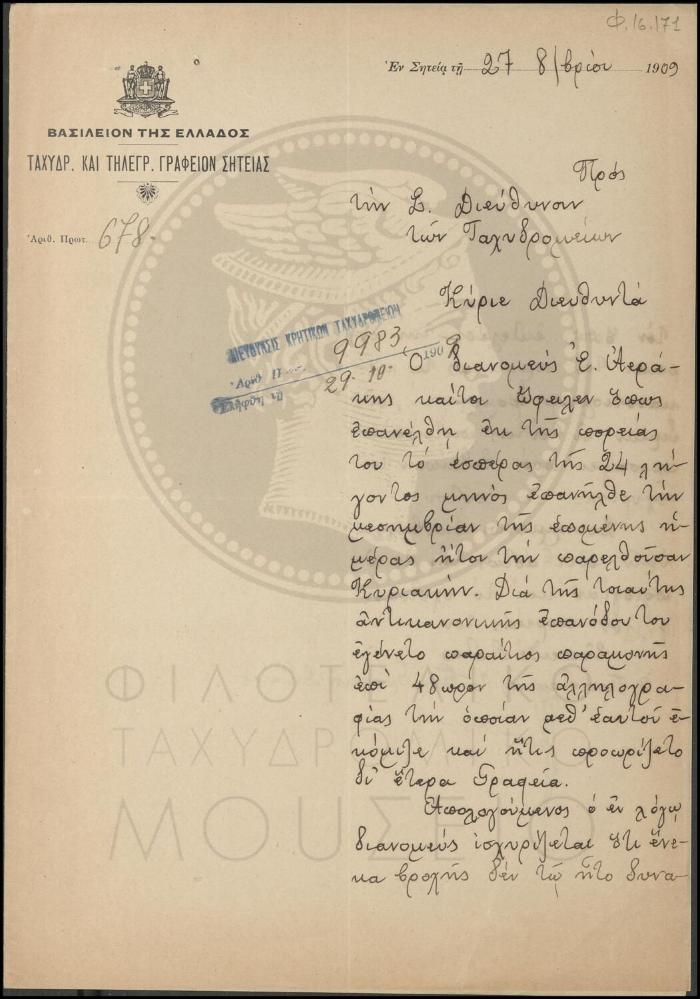 Φ.16.171
Ἐν Σητείᾳ τῇ 27 8/βρίου 1909
ΒΑΣΙΛΕΙΟΝ ΤΗΣ ΕΛΛΑΔΟΣ
ΤΑΧΥΔΡ. ΚΑΙ ΤΗΛΕΓΡ. ΓΡΑΦΕΙΟΝ ΣΗΤΕΙΑΣ
Ἀριθ. Πρωτ. 678
Πρός
τὴν Σ. Διεύθυνσιν
τῶν Ταχυδρομείων
Κύριε Διευθυντά
ΔΙΕΥΘΥΝΣΙΣ ΚΡΗΤΙΚΩΝ ΤΑΧΥΔΡΟΜΕΙΩΝ
Ἀριθ. 9983
29-10- 1909
Ὁ διανομεὺς Ἐ. Ἀερά-
κης καίτοι ὤφειλεν ὅπως
ἐπανέλθῃ ἐκ τῆς πορείας
του τὸ ἑσπέρας τῆς 24 λή-
γοντος μηνὸς ἐπανῆλθε τὴν
μεσημβρίαν τῆς ἑπομένης ἡ-
μέρας ἤτοι τὴν παρελθοῦσαν
Κυριακήν. Διὰ τῆς τοιαύτης
ἀντικανονικῆς ἐπανόδου του
ἐγένετο παραίτιος παραμονῆς
ἐπὶ 48ωρον τῆς ἀλληλογρα-
φίας τὴν ὁποίαν μεθ' ἑαυτοῦ ἐ-
κόμιζε καὶ ἥτις προωρίζετο
δι' ἕτερα Γραφεῖα.
Ἀπολογούμενος ὁ ἐν λόγῳ
διανομεὺς ἰσχυρίζεται ὅτι ἕνε-
κα βροχῆς δὲν τῷ ἦτο δυνα-
ΦΙΛΟΤΕΛΙΚΟ
ΤΑΧΥΔΡΟΜΙΚΟ
ΜΟΥΣΕΙΟ